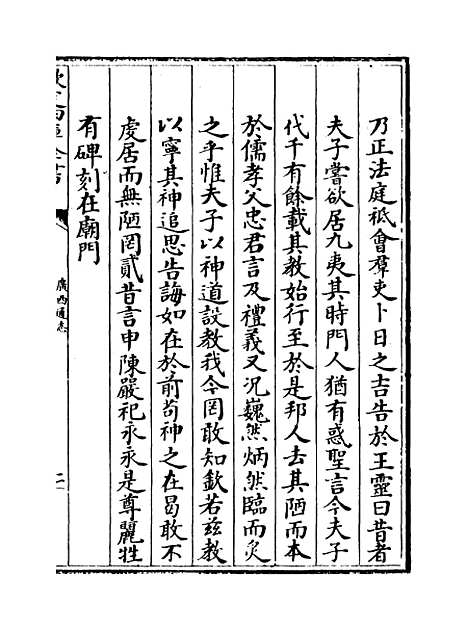 乃正法庭祗會羣吏卜日之吉告於王靈曰昔者
夫子嘗欲居九夷其時門人猶有惑聖言今夫子
代千有餘載其教始行至於是邦人去其陋而本
於儒孝父忠君言及禮義又況巍然炳然臨而炙
之乎惟夫子以神道設教我今罔敢知欽若兹教
以寧其神追思告誨如在於前茍神之在曷敢不
虔居而無陋罔貳昔言申陳嚴祀永永是尊麗牲
有碑刻在廟門
廣西通志